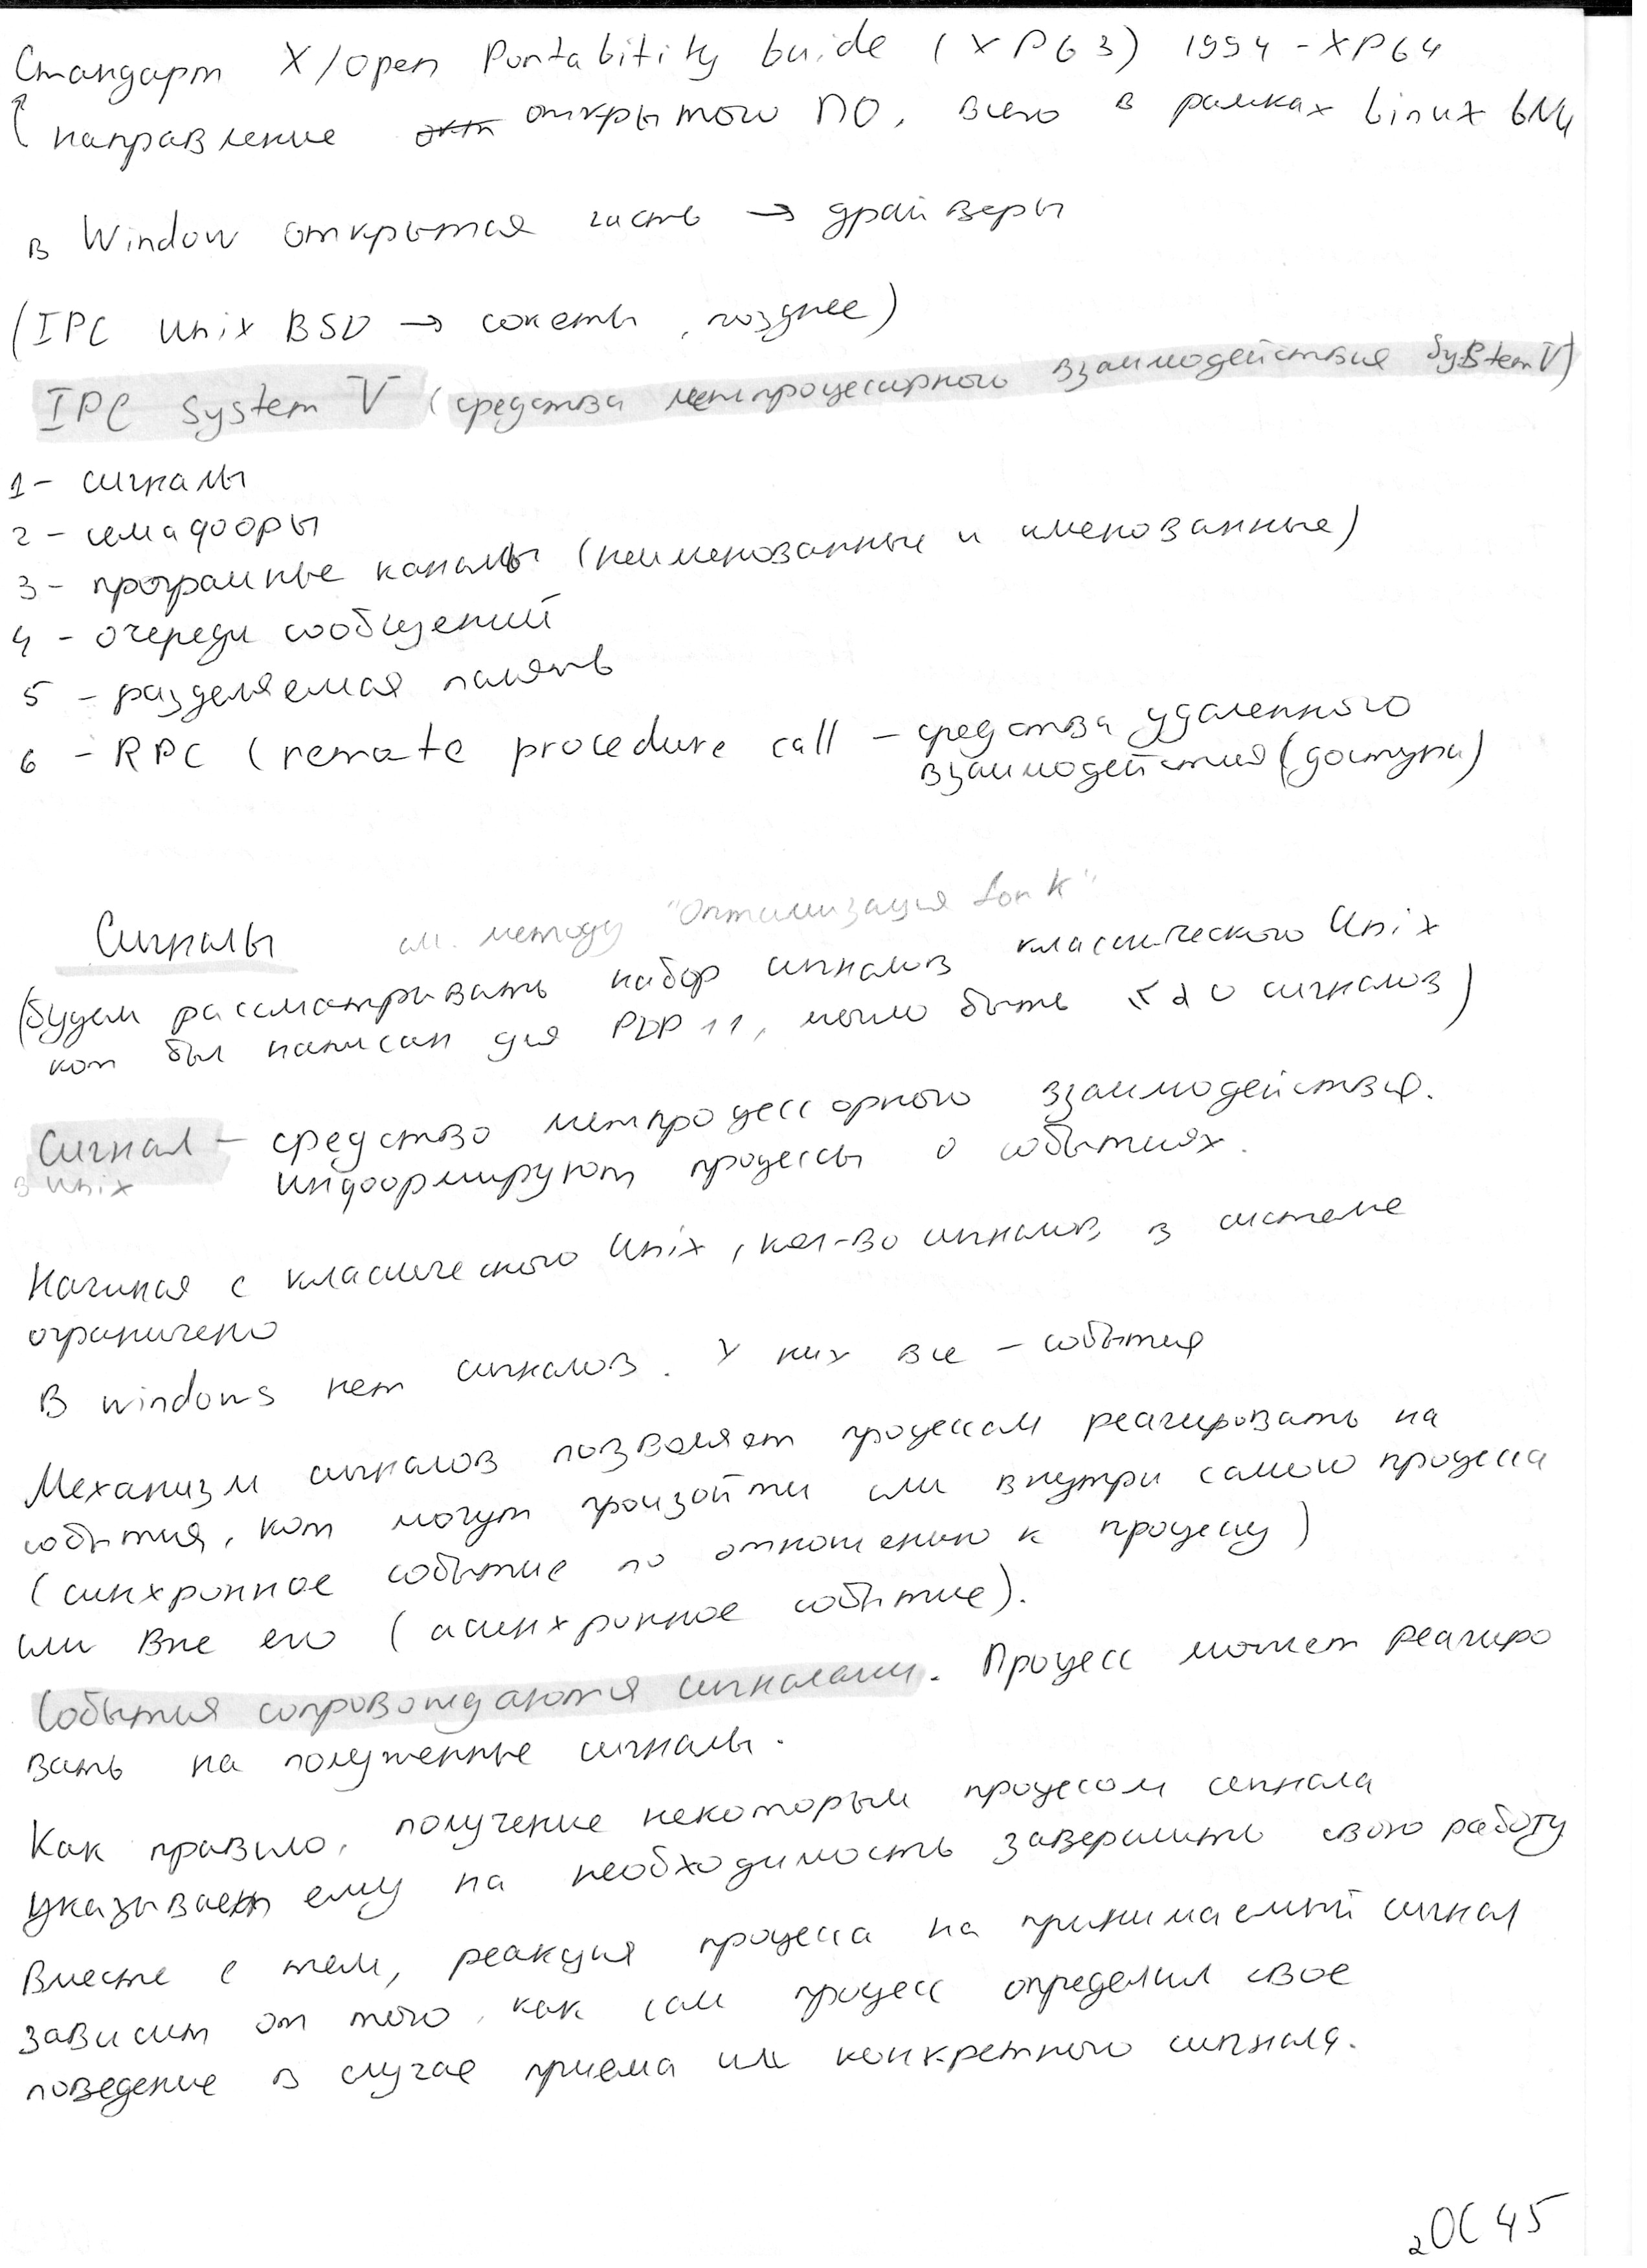 Стандарт X/open Portability Guide (XPG3) 1994 - XPG4
направление открытого ПО, всего в рамках Linux GNU
в Window открытая часть → драйверы
(IPC Unix BSD → сокеты, позднее)
IPC System V (средства межпроцессорного взаимодействия System V)
1 - сигналы
2 - семафоры
3 - програмные каналы (неименованные и именованные)
4 - очереди сообщений
5 - разделяемая память
6 - RPC (remote procedure call - средства удаленного
взаимодействия (доступа)
Сигналы см. методу "Оптимизация fork"
(будем рассматривать набор сигналов классического Unix
кот был написан для PDP 11, могло быть ≤ 20 сигналов)
Сигнал - средство межпроцессорного взаимодействия.
в Unix информируют процессы о событиях.
Начиная с классического Unix, кол-во сигналов в системе
ограничено
В windows нет сигналов. У них все - события
Механизм сигналов позволяет процессам реагировать на
события, кот могут произойти или внутри самого процесса
(синхронное событие по отношению к процессу)
или вне его (асинхронное событие).
События сопровождаются сигналами. Процесс может реагиро
вать на полученные сигналы.
Как правило, получение некоторым процесом сигнала
указывает ему на необходимость завершить свою работу
Вместе с тем, реакция процесса на принимаемый сигнал
зависит от того, как сам процесс определил свое
поведение в случае приема им конкретного сигнала.
2ОС 45